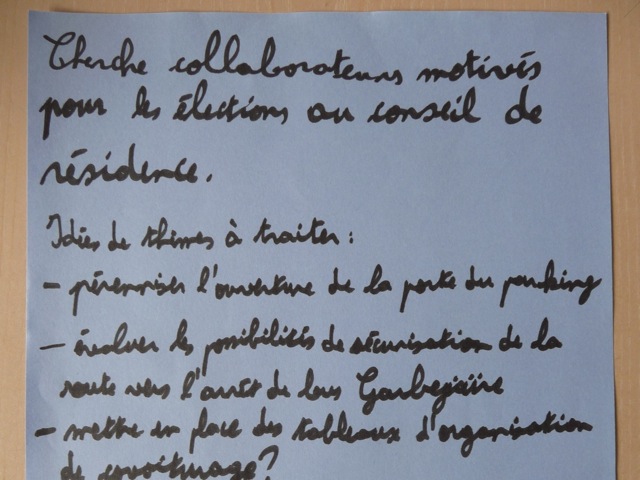 Cherche collaborateurs motivés
pour les élections au conseil de
résidence.
Idées de thèmes à traiter :
- pérenniser l'ouverture de la porte du parking
- évaluer les possibilités de sécurisation de la
route vers l'arrêt de bus Garbejaïre
- mettre en place des tableaux d'organisation
de covoiturage ?